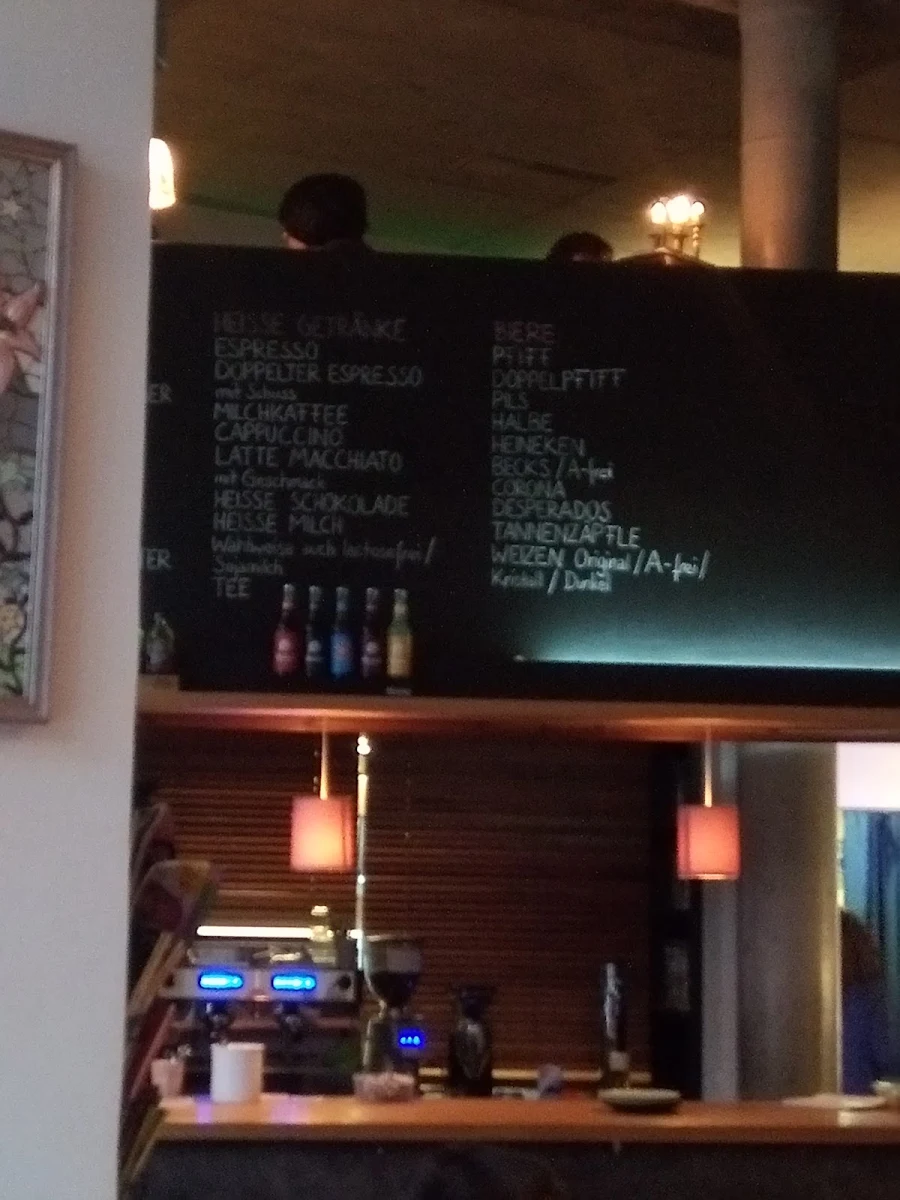 ER
ER
HEISSE GETRÄNKE
ESPRESSO
DOPPELTER ESPRESSO
mit Schuss
MILCHKAFFEE
CAPPUCCINO
LATTE MACCHIATO
mit Geschmack
HEISSE SCHOKOLADE
HEISSE MILCH
Wahlweise auch lactosefrei/
Sojamilch
TEE
BIERE
PFIFF
DOPPELPFIFF
PILS
HALBE
HEINEKEN
BECKS/A-frei
CORONA
DESPERADOS
TANNENZÄPFLE
WEIZEN Original/A-frei/
Kristall/Dunkel